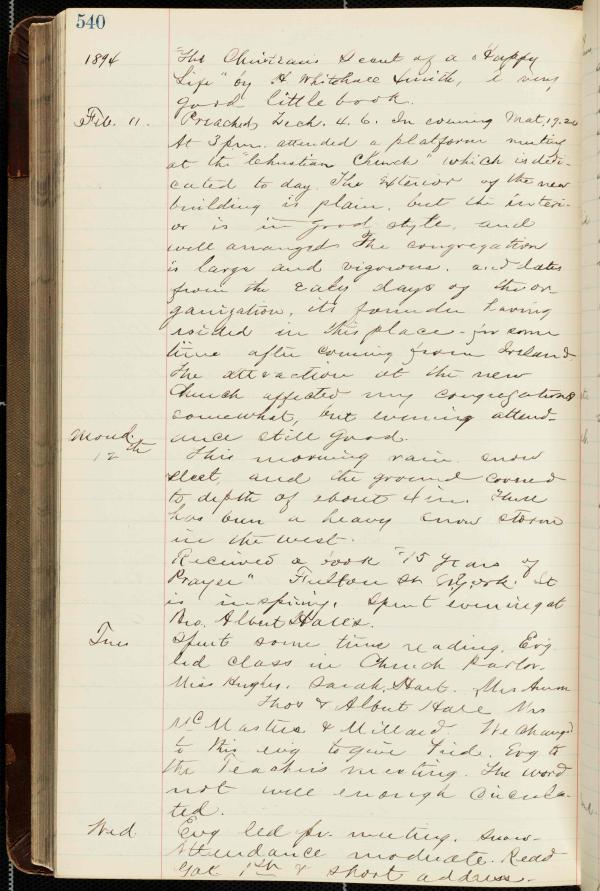 540
1894 "The Christians Secret of a Happy
Life" by H Whitehall Smith, a very
good little book.
Feb. 11. Preached, Zech. 4. 6. In evening Mat. 19. 20
At 3 p.m. attended a platform meeting
at the "Christian Church" which is dedi-
cated to day. The exterior of the new
building is plain, but the interi-
or is in good style, and
well arranged The congregation
is large and vigorous. and dates
from the early days of the or-
ganization, its founder having
resided in this place - for some
time after coming from Ireland.
The attraction at the new
Church affected my congregations
somewhat, but evening attend-
ance still good.
Mond. 12th This morning rain snow
sleet, and the ground covered
to depth of about 4 in. There
has been a heavy snow storm
in the west.
Received a book "15 Years of
Prayer" Fulton St It
is inspiring. Spent evening at
Bro. Albert Hale's.
Tues Spent some time reading. Evg
led class in Church Parlor.
Miss Hughs, Sarah Hart. Mrs
Thos & Albert Hale Mrs
McMasters & Millard. We changed
to this evg to give Frid. Evg to
the Teachers meeting. The word
not well enough circula-
ted.
Wed Evg led pr. meeting. Snow-
Attendance moderate. Read
Gal & short address.